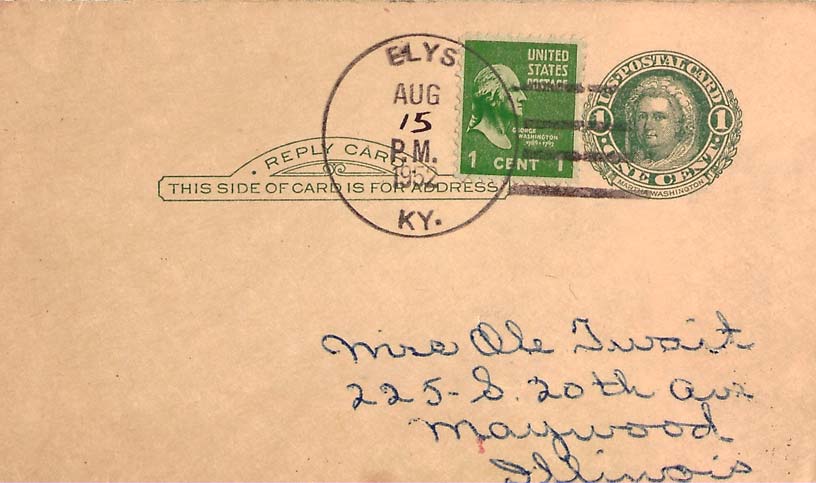 ELYS
AUG
15
P.M.
1952
KY.
UNITED
STATES
POSTAGE
GEORGE
WASHINGTON
1789-1797
1 CENT 1
U.S. POSTAL CARD
1 1
ONE CENT
MARTHA WASHINGTON
REPLY CARD
THIS SIDE OF CARD IS FOR ADDRESS
Mrs Ole Twait
225-S. 20th Ave
Maywood
Illinois